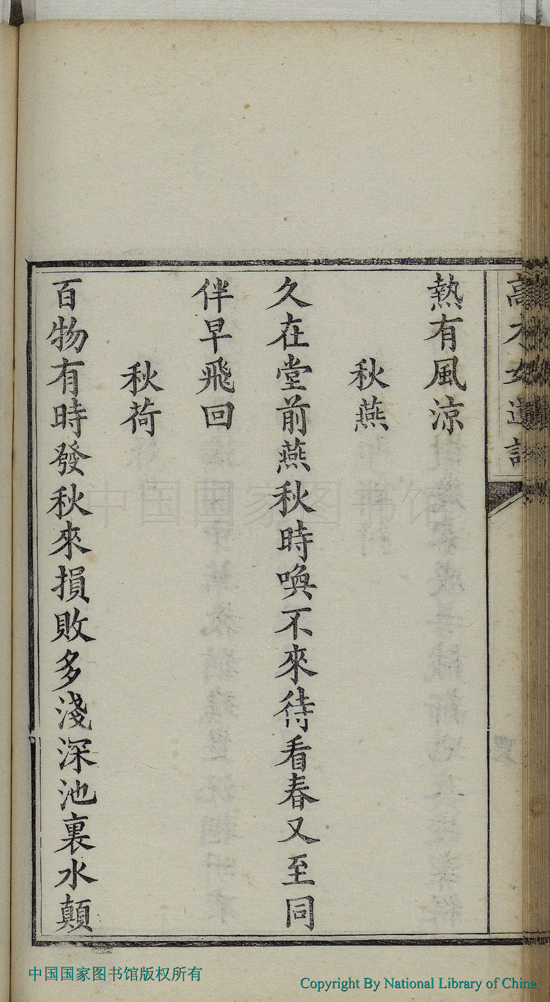 高才女遺詩
熱有風涼
秋燕
久在堂前燕秋時喚不來待看春又至同
伴早飛回
秋荷
百物有時發秋來損敗多淺深池裏水顛
中国国家图书馆
中国国家图书馆版权所有
Copyright By National Library of China